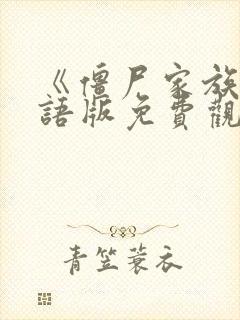 《僵尸家族
語版免費觀
青笠蓑衣